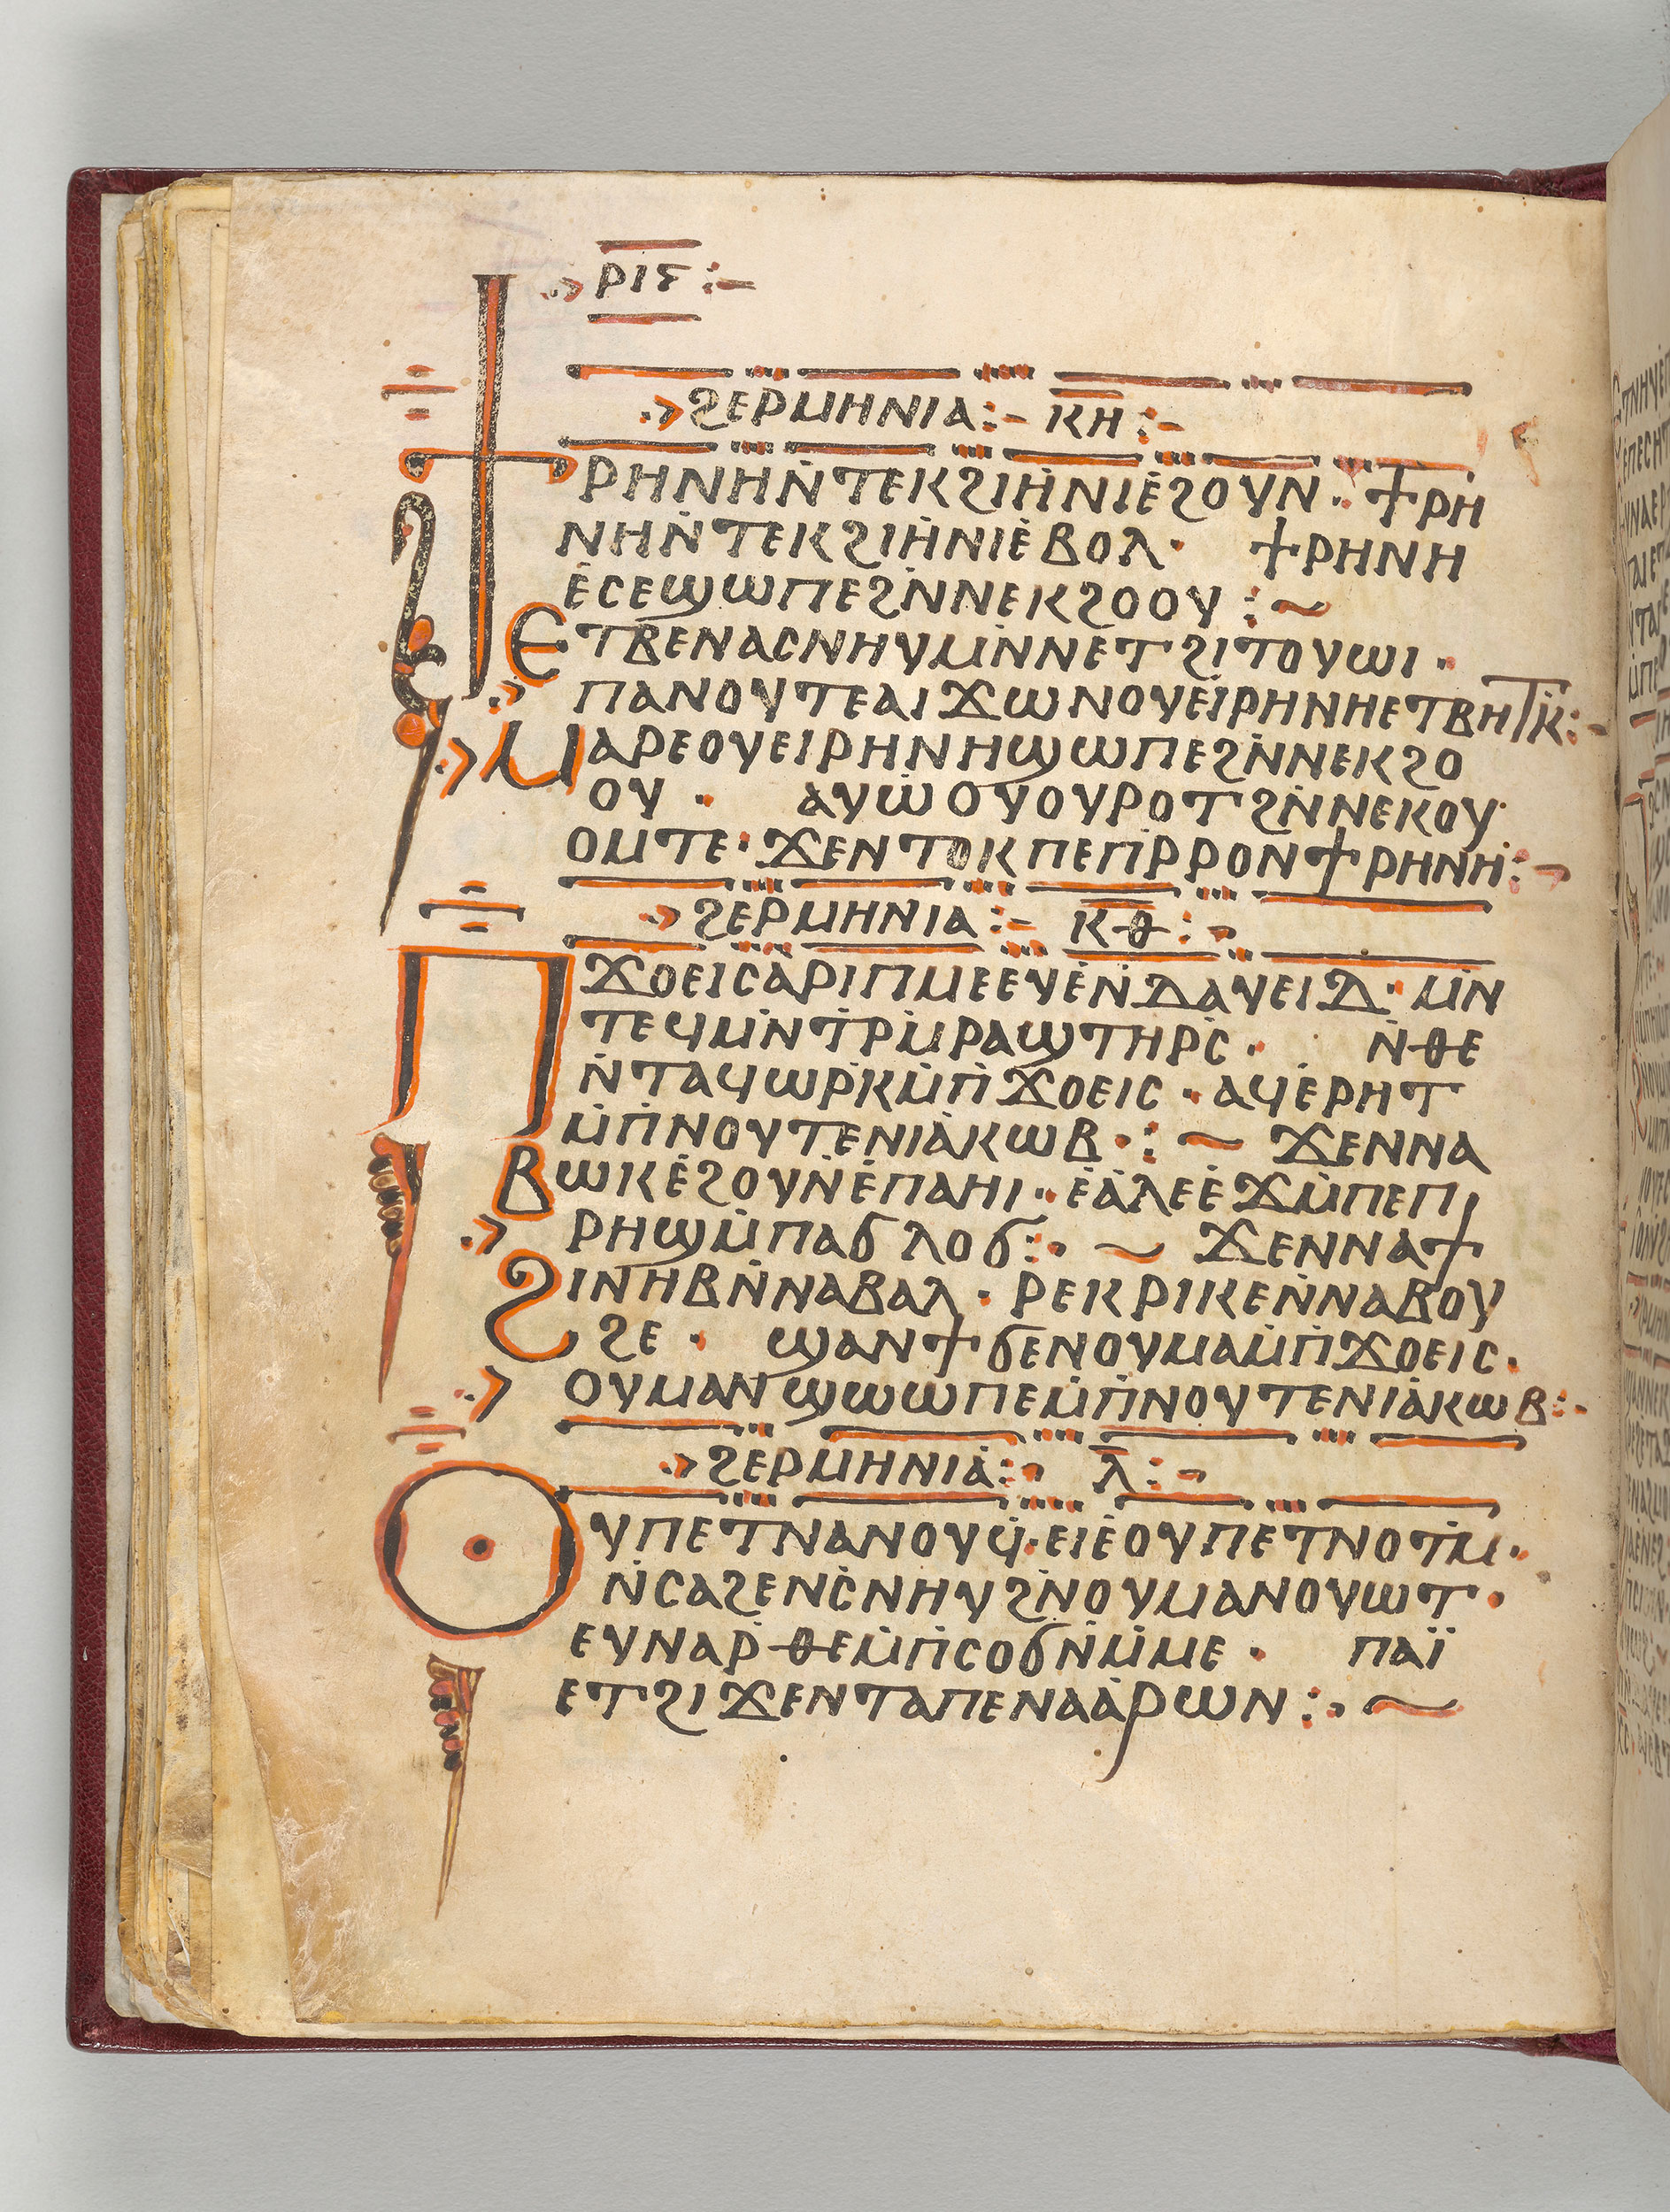 ⲣⲓⲋ
ϩⲉⲣⲙⲏⲛⲓⲁ:- ⲕⲏ:-
ϯⲣⲏⲛⲏⲛ̇ⲧⲉⲕϩⲓⲏ̇ⲛⲓⲉ̇ϩⲟⲩⲛ· ϯⲣⲏ
ⲛⲏⲛ̇ⲧⲉⲕϩⲓⲏ̇ⲛⲓⲉ̇ⲃⲟⲗ· ϯⲣⲏⲛⲏ
ⲉ̇ⲥⲉϣⲱⲡⲉϩⲛ̇ⲛⲉⲕϩⲟⲟⲩ:~
ⲉⲧⲃⲉⲛⲁⲥⲛⲏⲩⲙⲛ̇ⲛⲉⲧϩⲓⲧⲟⲩⲱⲓ·
ⲡⲁⲛⲟⲩⲧⲉⲁⲓϫⲱⲛⲟⲩⲉⲓ̇ⲣⲏⲛⲏⲉⲧⲃⲏⲧⲕ̇:-
ⲙⲁⲣⲉⲟⲩⲉⲓⲣⲏⲛⲏϣⲱⲡⲉϩⲛ̇ⲛⲉⲕϩⲟ
ⲟⲩ· ⲁⲩⲱ̇ⲟⲩⲟⲩⲣⲟⲧϩⲛ̇ⲛⲉⲕⲟⲩ
ⲟⲙⲧⲉ· ϫⲉⲛⲧⲟⲕⲡⲉⲡⲣ̇ⲣⲟⲛϯⲣⲏⲛⲏ:-
ϩⲉⲣⲙⲏⲛⲓⲁ:- ⲕⲑ:-
ⲡϫⲟⲉⲓⲥⲁ̇ⲣⲓⲡⲙⲉⲉⲩⲉ̇ⲛ̇ⲇⲁⲩⲉⲓⲇ· ⲙⲛ̇
ⲧⲉϥⲙⲛ̇ⲧⲣ̇ⲙ̇ⲣⲁϣⲧⲏⲣⲥ̇· ⲛ̇ⲑⲉ
ⲛ̇ⲧⲁϥⲱⲣ̇ⲕⲙ̇ⲡ̇ϫⲟⲉⲓⲥ· ⲁϥⲉ̇ⲣⲏⲧ
ⲙ̇ⲡ̇ⲛⲟⲩⲧⲉⲛⲓⲁ̇ⲕⲱⲃ·:~ ϫⲉⲛⲛⲁ
ⲃⲱⲕⲉ̇ϩⲟⲩⲛⲉ̇ⲡⲁⲏⲓ· ⲉ̇ⲁ̇ⲗⲉⲉ̇ϫⲙ̇ⲡⲉⲡ
ⲣⲏϣⲙ̇ⲡⲁϭⲗⲟϭ:·~ ϫⲉⲛⲛⲁϯ
ϩⲓⲛⲏⲃⲛ̇ⲛⲁⲃⲁⲗ· ⲣⲉⲕⲣⲓⲕⲉⲛ̇ⲛⲁⲃⲟⲩ
ϩⲉ· ϣⲁⲛϯϭⲉⲛⲟⲩⲙⲁⲙ̇ⲡ̇ϫⲟⲉⲓⲥ·
ⲟⲩⲙⲁⲛϣⲱⲱⲡⲉⲙ̇ⲡ̇ⲛⲟⲩⲧⲉⲛⲓⲁ̇ⲕⲱⲃ:-
ϩⲉⲣⲙⲏⲛⲓⲁ̇:- ⲗ:-
ⲟⲩⲡⲉⲧⲛⲁⲛⲟⲩϥ̇·ⲉⲓⲉ̇ⲟⲩⲡⲉⲧⲛⲟⲧⲙ̇·
ⲛ̇ⲥⲁϩⲉⲛⲥ̇ⲛⲏⲩϩⲛ̇ⲟⲩⲙⲁⲛⲟⲩⲱⲧ·
ⲉⲩⲛⲁⲣ̇ⲑⲉⲙ̇ⲡ̇ⲥⲟϭⲛ̇ⲙ̇ⲙⲉ· ⲡⲁⲓ̈
ⲉⲧϩⲓϫⲉⲛⲧⲁⲡⲉⲛⲁⲁ̇ⲣⲱⲛ:·~